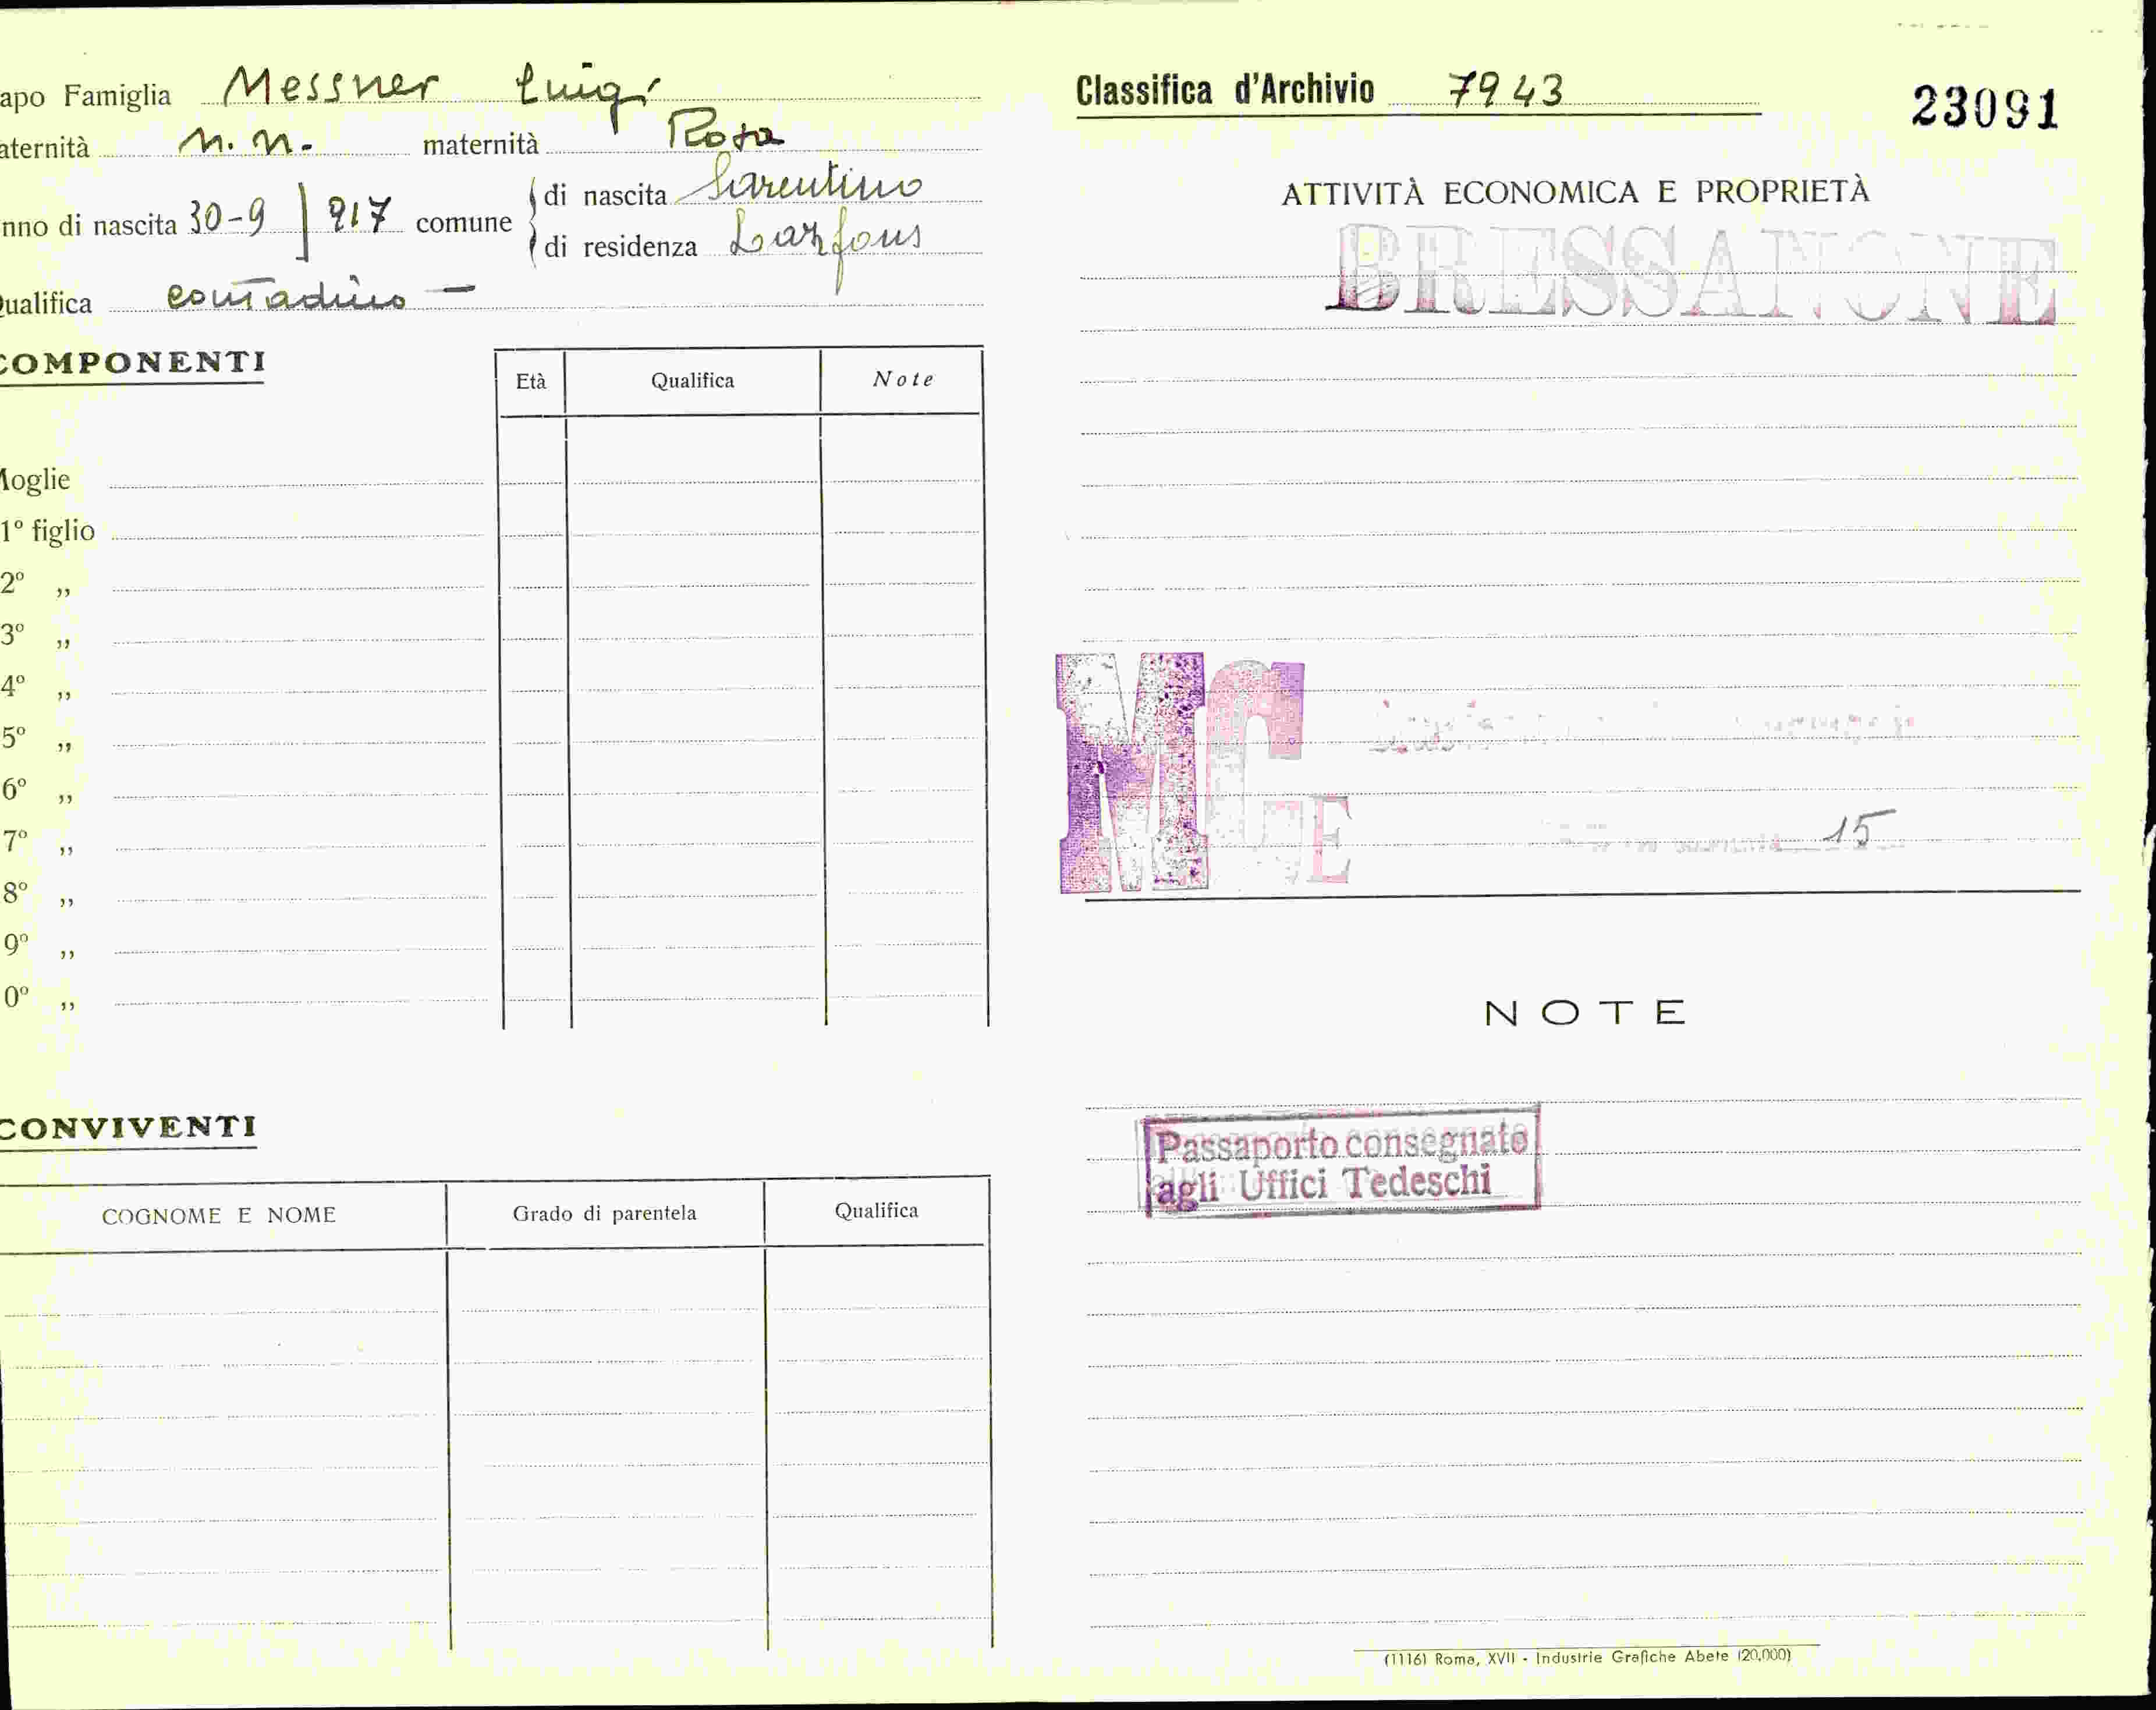 apo Famiglia Messner Luigi
aternità n. n. maternità Rosa
nno di nascita 30-9 917 comune
di nascita Sarentino
di residenza Lazfons
ualifica contadino –
COMPONENTI
Età Qualifica Note
Moglie
1º figlio
2º „
3º „
4º „
5º „
6º „
7º „
8º „
9º „
0º „
CONVIVENTI
COGNOME E NOME Grado di parentela Qualifica
Classifica d'Archivio 7943
23091
ATTIVITÀ ECONOMICA E PROPRIETÀ
BRESSANONE
MCE
15
NOTE
Passaporto consegnato
agli Uffici Tedeschi
(1116) Roma, XVII - Industrie Grafiche Abete (20.000)